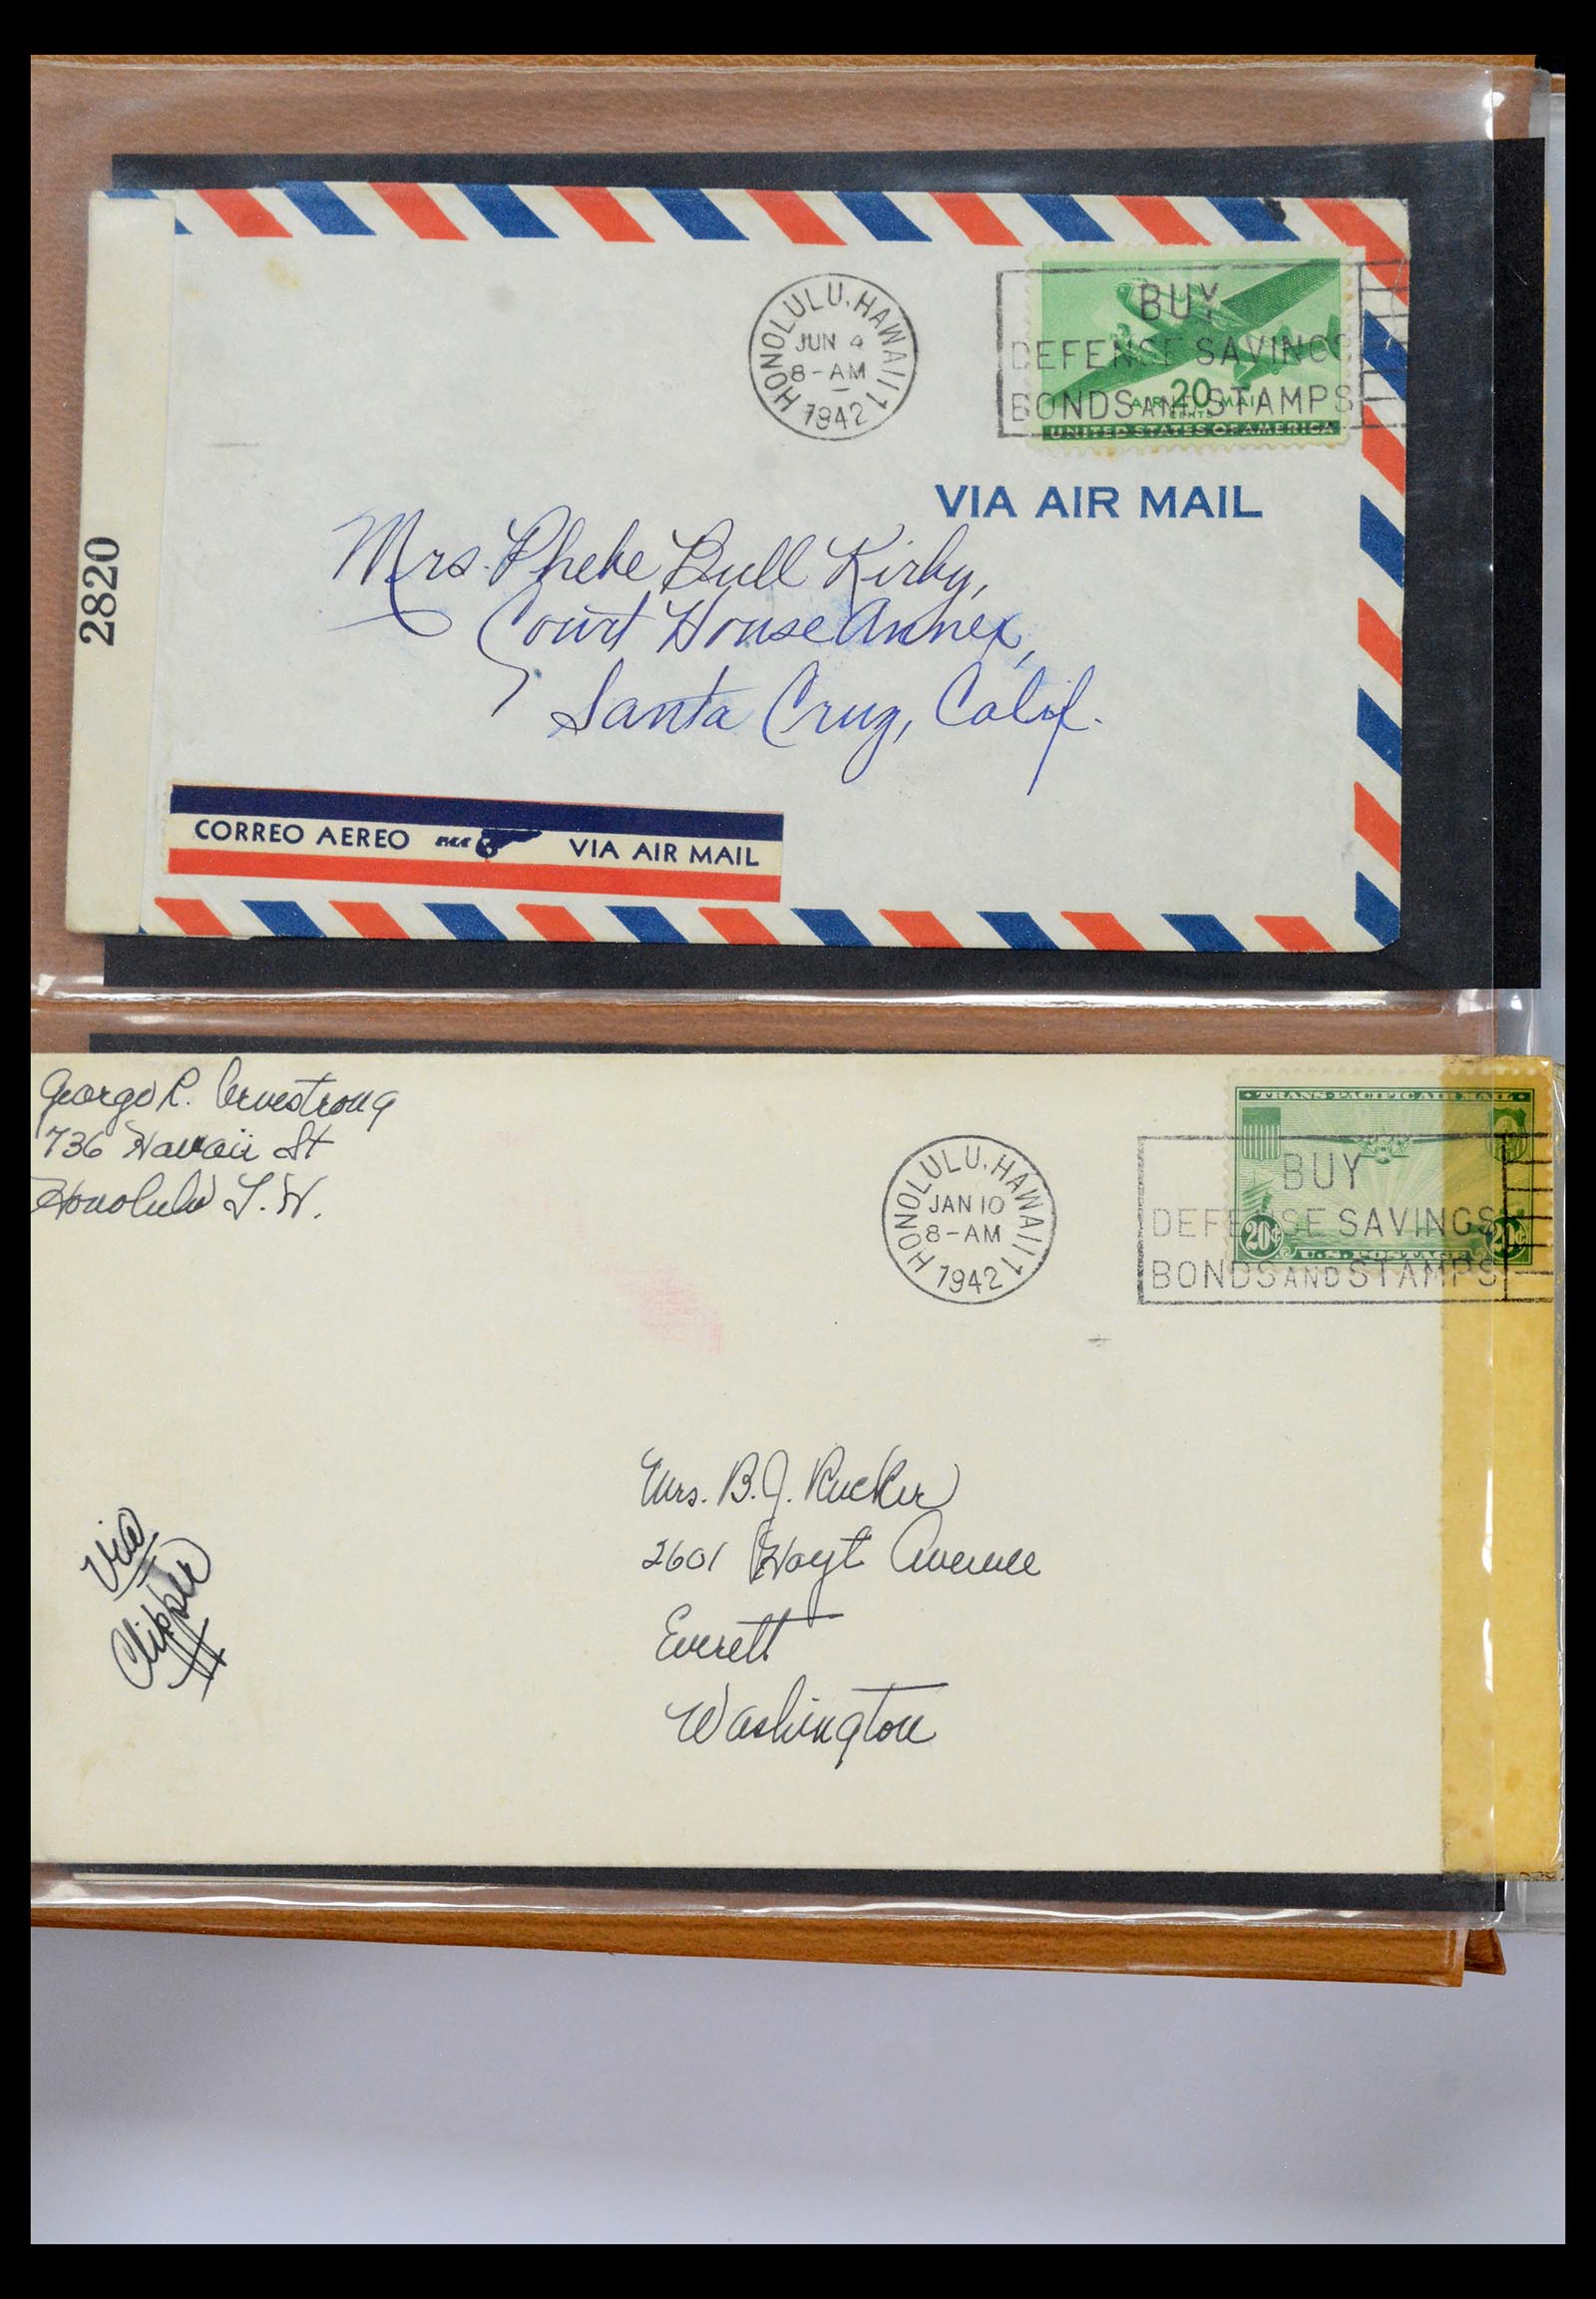 HONOLULU, HAWAII 1
JUN 4
8-AM
1942
BUY
DEFENSE SAVINGS
BONDS AND STAMPS
AIR 20 MAIL
CENTS
UNITED STATES OF AMERICA
VIA AIR MAIL
2820
Mrs. Phebe Bull Kirby,
Court House Annex,
Santa Cruz, Calif.
CORREO AEREO VIA AIR MAIL
George R. Armstrong
736 Hawaii St
Honolulu T.H.
HONOLULU, HAWAII 1
JAN 10
8-AM
1942
TRANS-PACIFIC AIR MAIL
BUY
DEFENSE SAVINGS
BONDS AND STAMPS
20¢ U.S. POSTAGE 20¢
Via
Clipper
Mrs. B.J. Rucker
2601 Hoyt Avenue
Everett
Washington